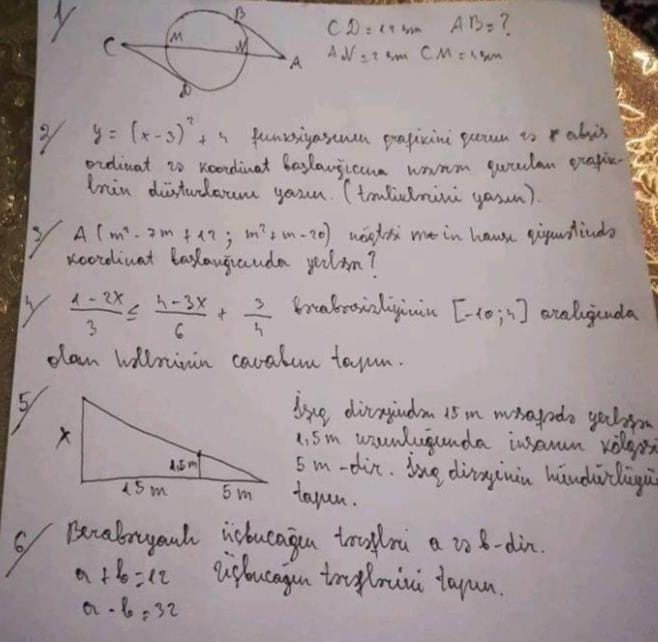 1/ C M B N A D CD = 12 sm AB = ?
AN = 2 sm CM = 4 sm
2/ y = (x-3)² + 4 funksiyasının qrafikini qurun və absis
ordinat və koordinat başlanğıcına nəzərən qurulan qrafik-
lərin düsturlarını yazın. (tənliklərini yazın).
3/ A (m² - 7m + 12 ; m² + m - 20) nöqtəsi m-in hansı qiymətində
koordinat başlanğıcında yerləşər?
4/ (1-2x)/3 ≤ (4-3x)/6 + 3/4 bərabərsizliyinin [-10;4] aralığında
olan həllərinin cavabını tapın.
5/ İşıq dirəyindən 15 m məsafədə yerləşən
1,5 m uzunluğunda insanın kölgəsi
x 1,5 m 15 m 5 m 5 m-dir. İşıq dirəyinin hündürlüyünü
tapın.
6/ Beraberyanlı üçbucağın tərəfləri a və b-dir.
a + b = 12 Üçbucağın tərəflərini tapın.
a · b = 32